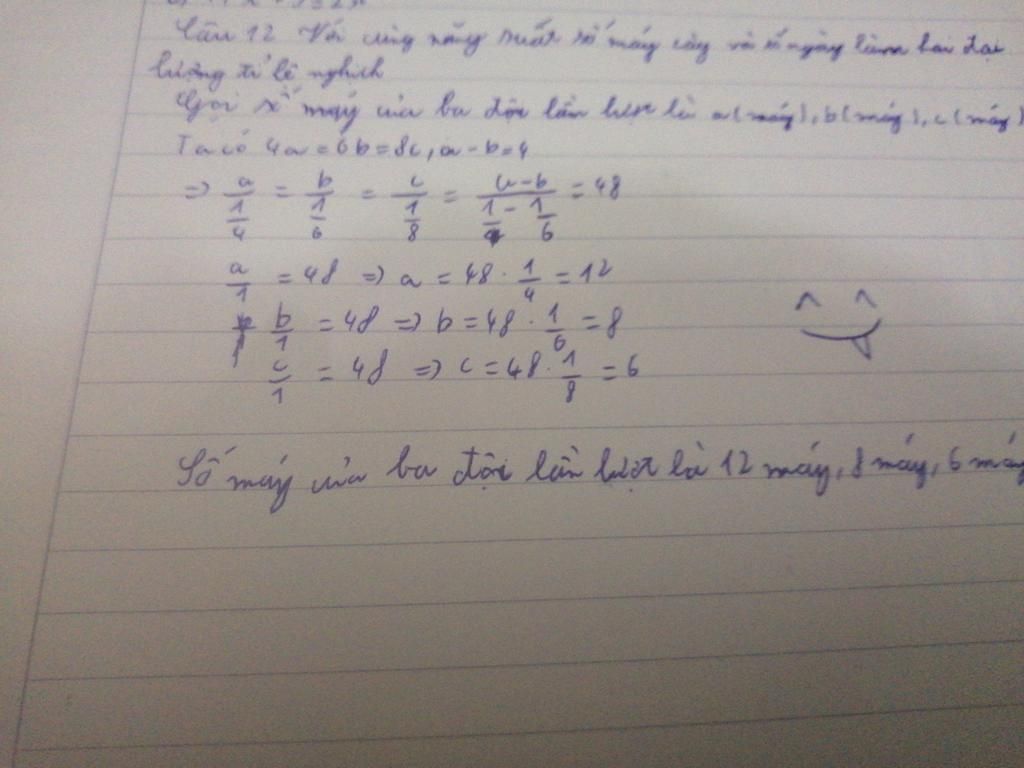 Câu 12 Với cùng năng suất số máy cày và số ngày làm hai đại
lượng tỉ lệ nghịch
Gọi số máy của ba đội lần lượt là a(máy), b(máy), c(máy)
Ta có 4a=6b=8c, a-b=4
=> a/(1/4) = b/(1/6) = c/(1/8) = (a-b)/(1/4 - 1/6) = 48
a/1 = 48 => a = 48 . 1/4 = 12
b/1 = 48 => b = 48 . 1/6 = 8
c/1 = 48 => c = 48 . 1/8 = 6
Số máy của ba đội lần lượt là 12 máy, 8 máy, 6 máy